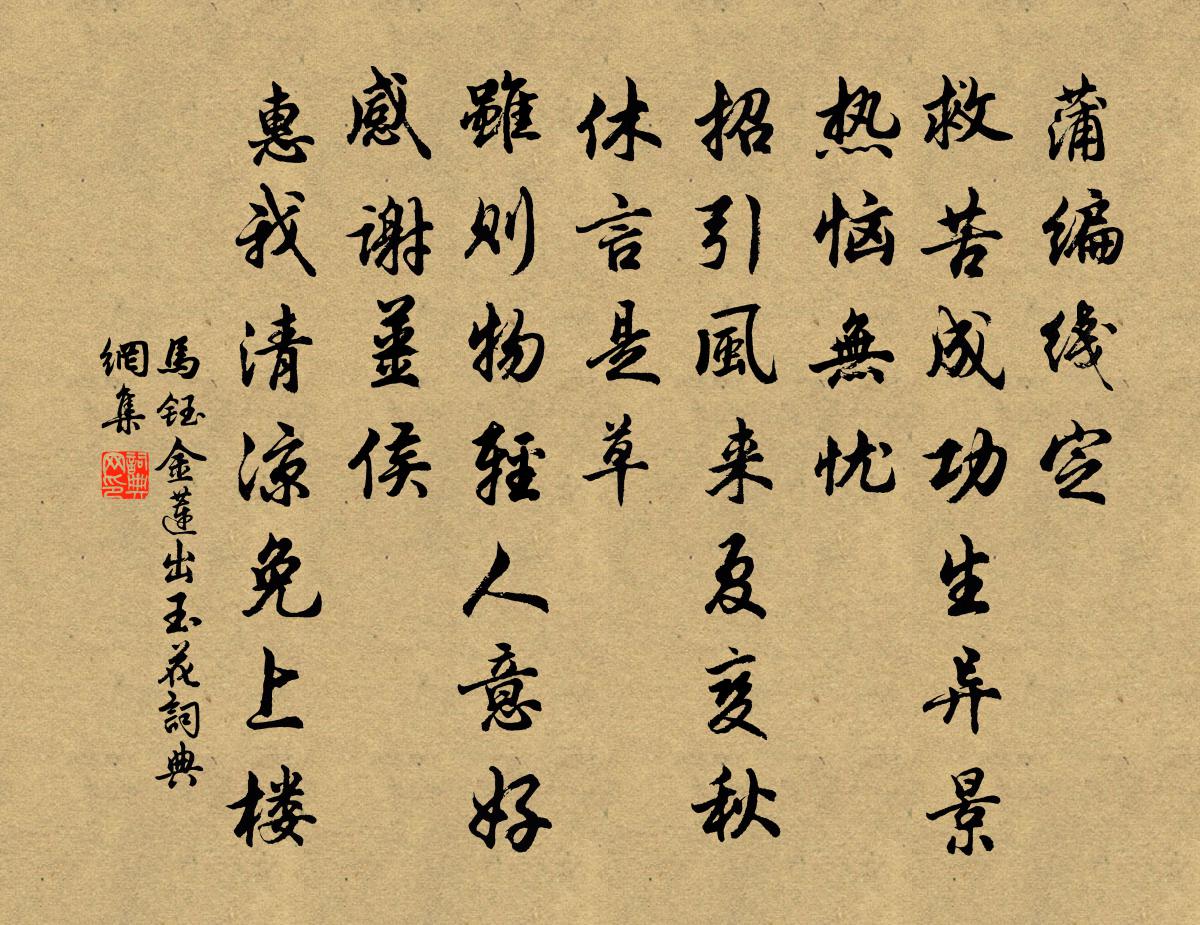 蒲编线定
救苦成功生异景
热恼無忧
招引風来夏变秋
休言是草
雖则物輕人意好
感谢姜侯
惠我清凉免上楼
馬钰金蓮出玉花詞典
網集
詞典网印